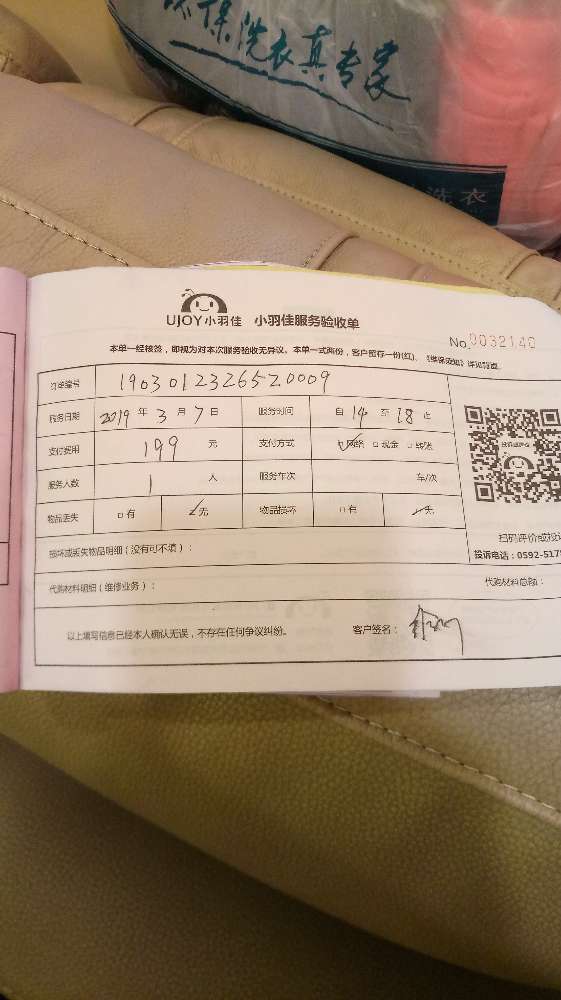 保洗衣真专家
洗衣
UJOY小羽佳 小羽佳服务验收单
No.0032140
本单一经核签，即视为对本次服务验收无异议。本单一式两份，客户留存一份(红)。《维保须知》详见背面。
订单编号 1903012326520009
服务日期 2019 年 3 月 7 日 服务时间 自 14 至 18 止
支付费用 199 元 支付方式 ☑网络 □现金 □转账
服务人数 1 人 服务车次 车/次
物品丢失 □有 ☑无 物品损坏 □有 ☑无
扫码评价或投诉
损坏或丢失物品明细（没有可不填）：
投诉电话：0592-517
代购材料明细（维修业务）： 代购材料总额：
以上填写信息已经本人确认无误，不存在任何争议纠纷。 客户签名：